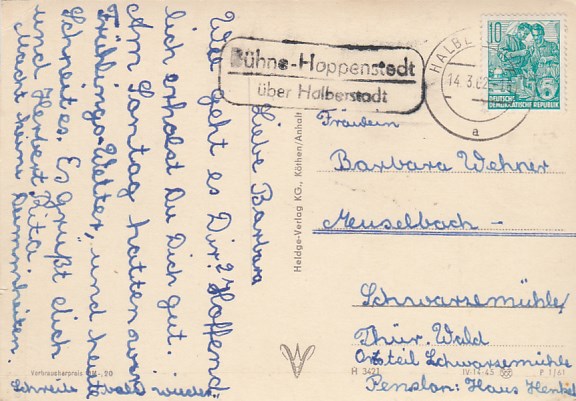 Liebe Barbara
Wie geht es Dir? Hoffend
lich erholst Du Dich gut.
Am Sontag hatten wir
"Frühlings-Wetter", und heute
Schneit es. Es grüßt dich
und Herbert, Rita.
Macht keine Dummheiten.
Schreibe bald wieder
Bühne-Hoppenstedt
über Halberstadt
HALBE
14.3.62
a
10
DEUTSCHE
DEMOKRATISCHE REPUBLIK
Fräulein
Barbara Wehner
Meuselbach -
Schwarzemühle/
Thür. Wald
Ortsteil Schwarzemühle
Pension: Haus Henkel
Heldge-Verlag KG., Köthen/Anhalt
Verbraucherpreis DM -,20
R 3421
IV-14-45
P 1/61